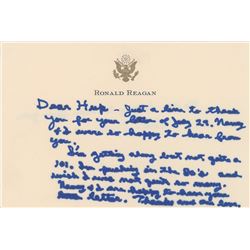 RONALD REAGAN
Dear Huf - Just a line to thank
you for your letter of July 23. Nancy
& I were so happy to hear from
you.
I'm getting along but not quite a
I'm pushing in the 80's and
wish I were not quite so many.
Nancy & I are happy to have your
letter. Thanks and